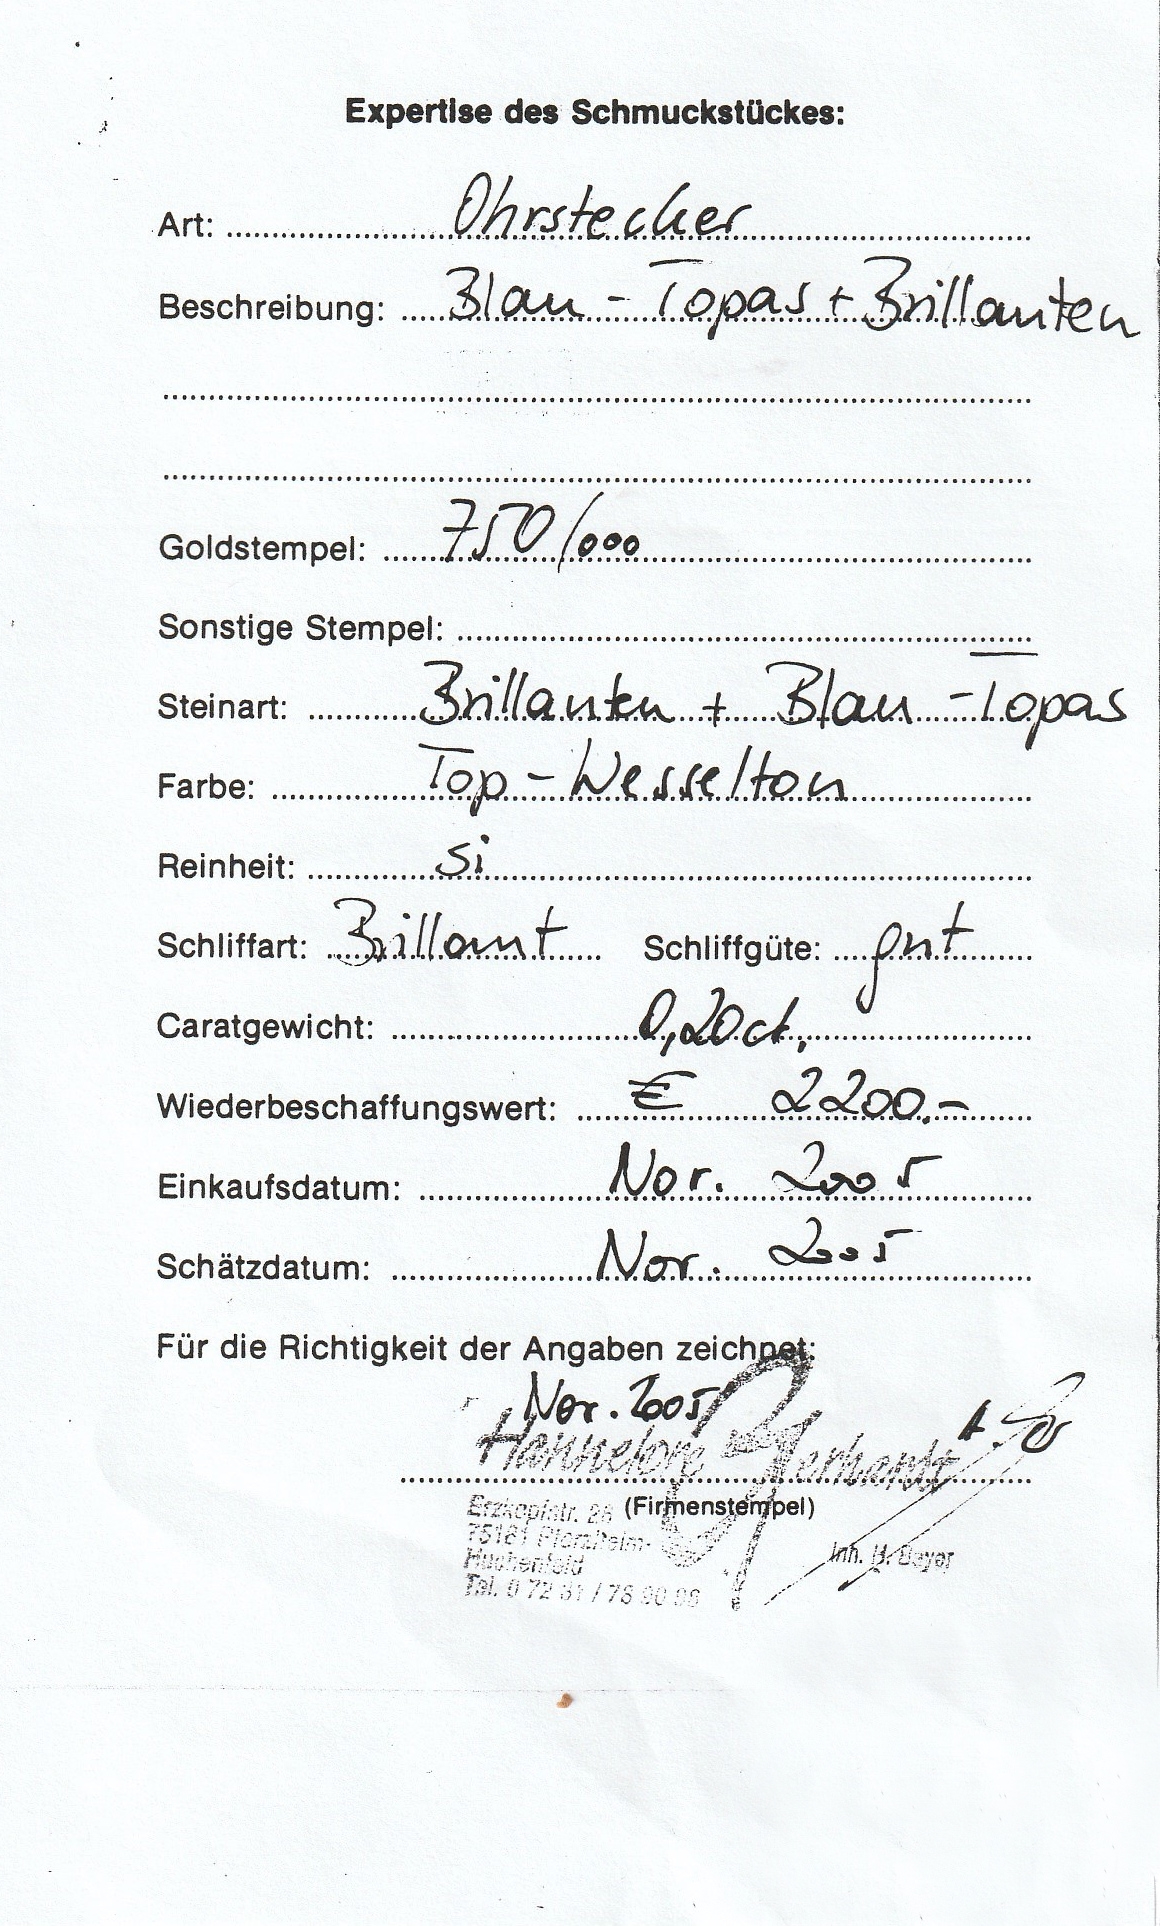 Expertise des Schmuckstückes:
Art: Ohrstecker
Beschreibung: Blau - Topas + Brillanten
Goldstempel: 750/000
Sonstige Stempel:
Steinart: Brillanten + Blau - Topas
Farbe: Top - Wesselton
Reinheit: si
Schliffart: Brillant Schliffgüte: gut
Caratgewicht: 0,20 ct.
Wiederbeschaffungswert: € 2200.-
Einkaufsdatum: Nov. 2005
Schätzdatum: Nov. 2005
Für die Richtigkeit der Angaben zeichnet:
Nov. 2005
Hannelore Gerhardt
(Firmenstempel)
Erzkopfstr. 26
75181 Pforzheim-
Huchenfeld
Inh. H. Bayer
Tel. 0 72 31 /